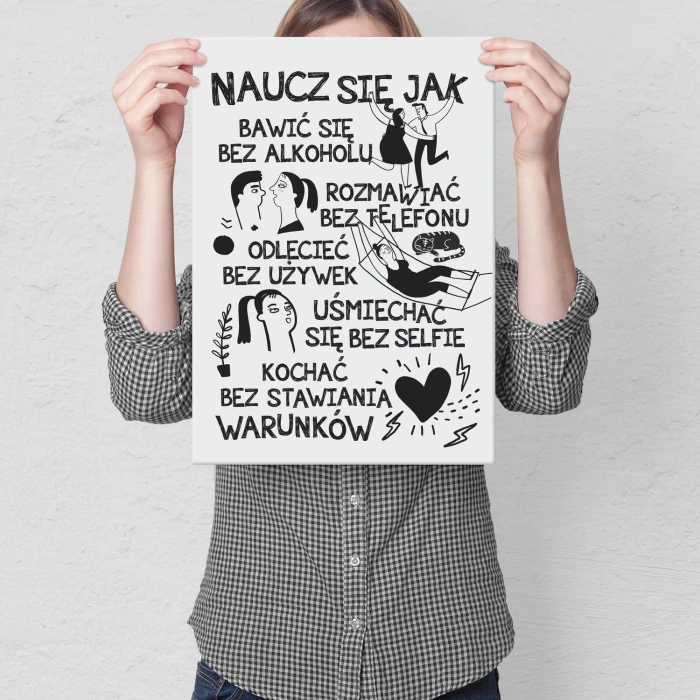 NAUCZ SIĘ JAK
BAWIĆ SIĘ
BEZ ALKOHOLU
ROZMAWIAĆ
BEZ TELEFONU
ODLECIEĆ
BEZ UŻYWEK
UŚMIECHAĆ
SIĘ BEZ SELFIE
KOCHAĆ
BEZ STAWIANIA
WARUNKÓW